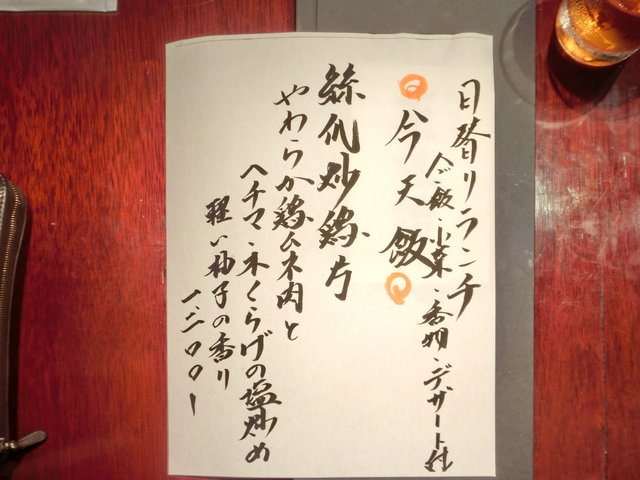 日替りランチ
ご飯・小菜・香物・デザート付
今天飯
絲瓜炒鶏片
やわらか鶏ムネ肉と
ヘチマ・木くらげの塩炒め
軽い柚子の香り
一、二〇〇ー